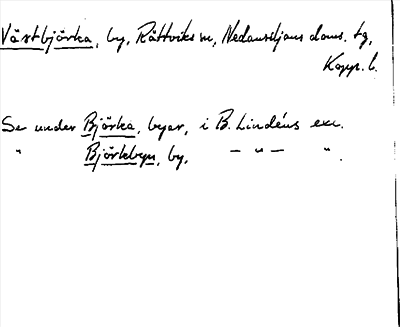 Västbjörka, by, Rättviks sn, Nedansiljans doms. tg,
Kopp. l.
Se under Björka, byar, i B. Lindéns exc.
" Björkbyn, by, — " — ".